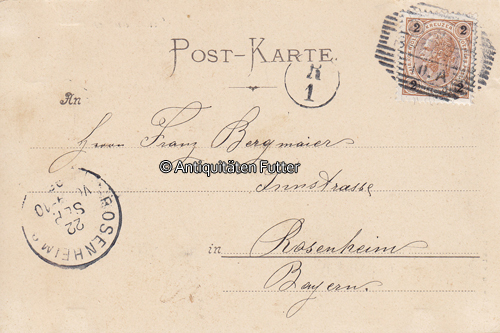 POST-KARTE.
2 KREUZER 2
2 2
K
1
An
Herrn Franz Bergmaier
© Antiquitäten Futter
Innstrasse
in Rosenheim
Bayern.
ROSENHEIM
22
SEP